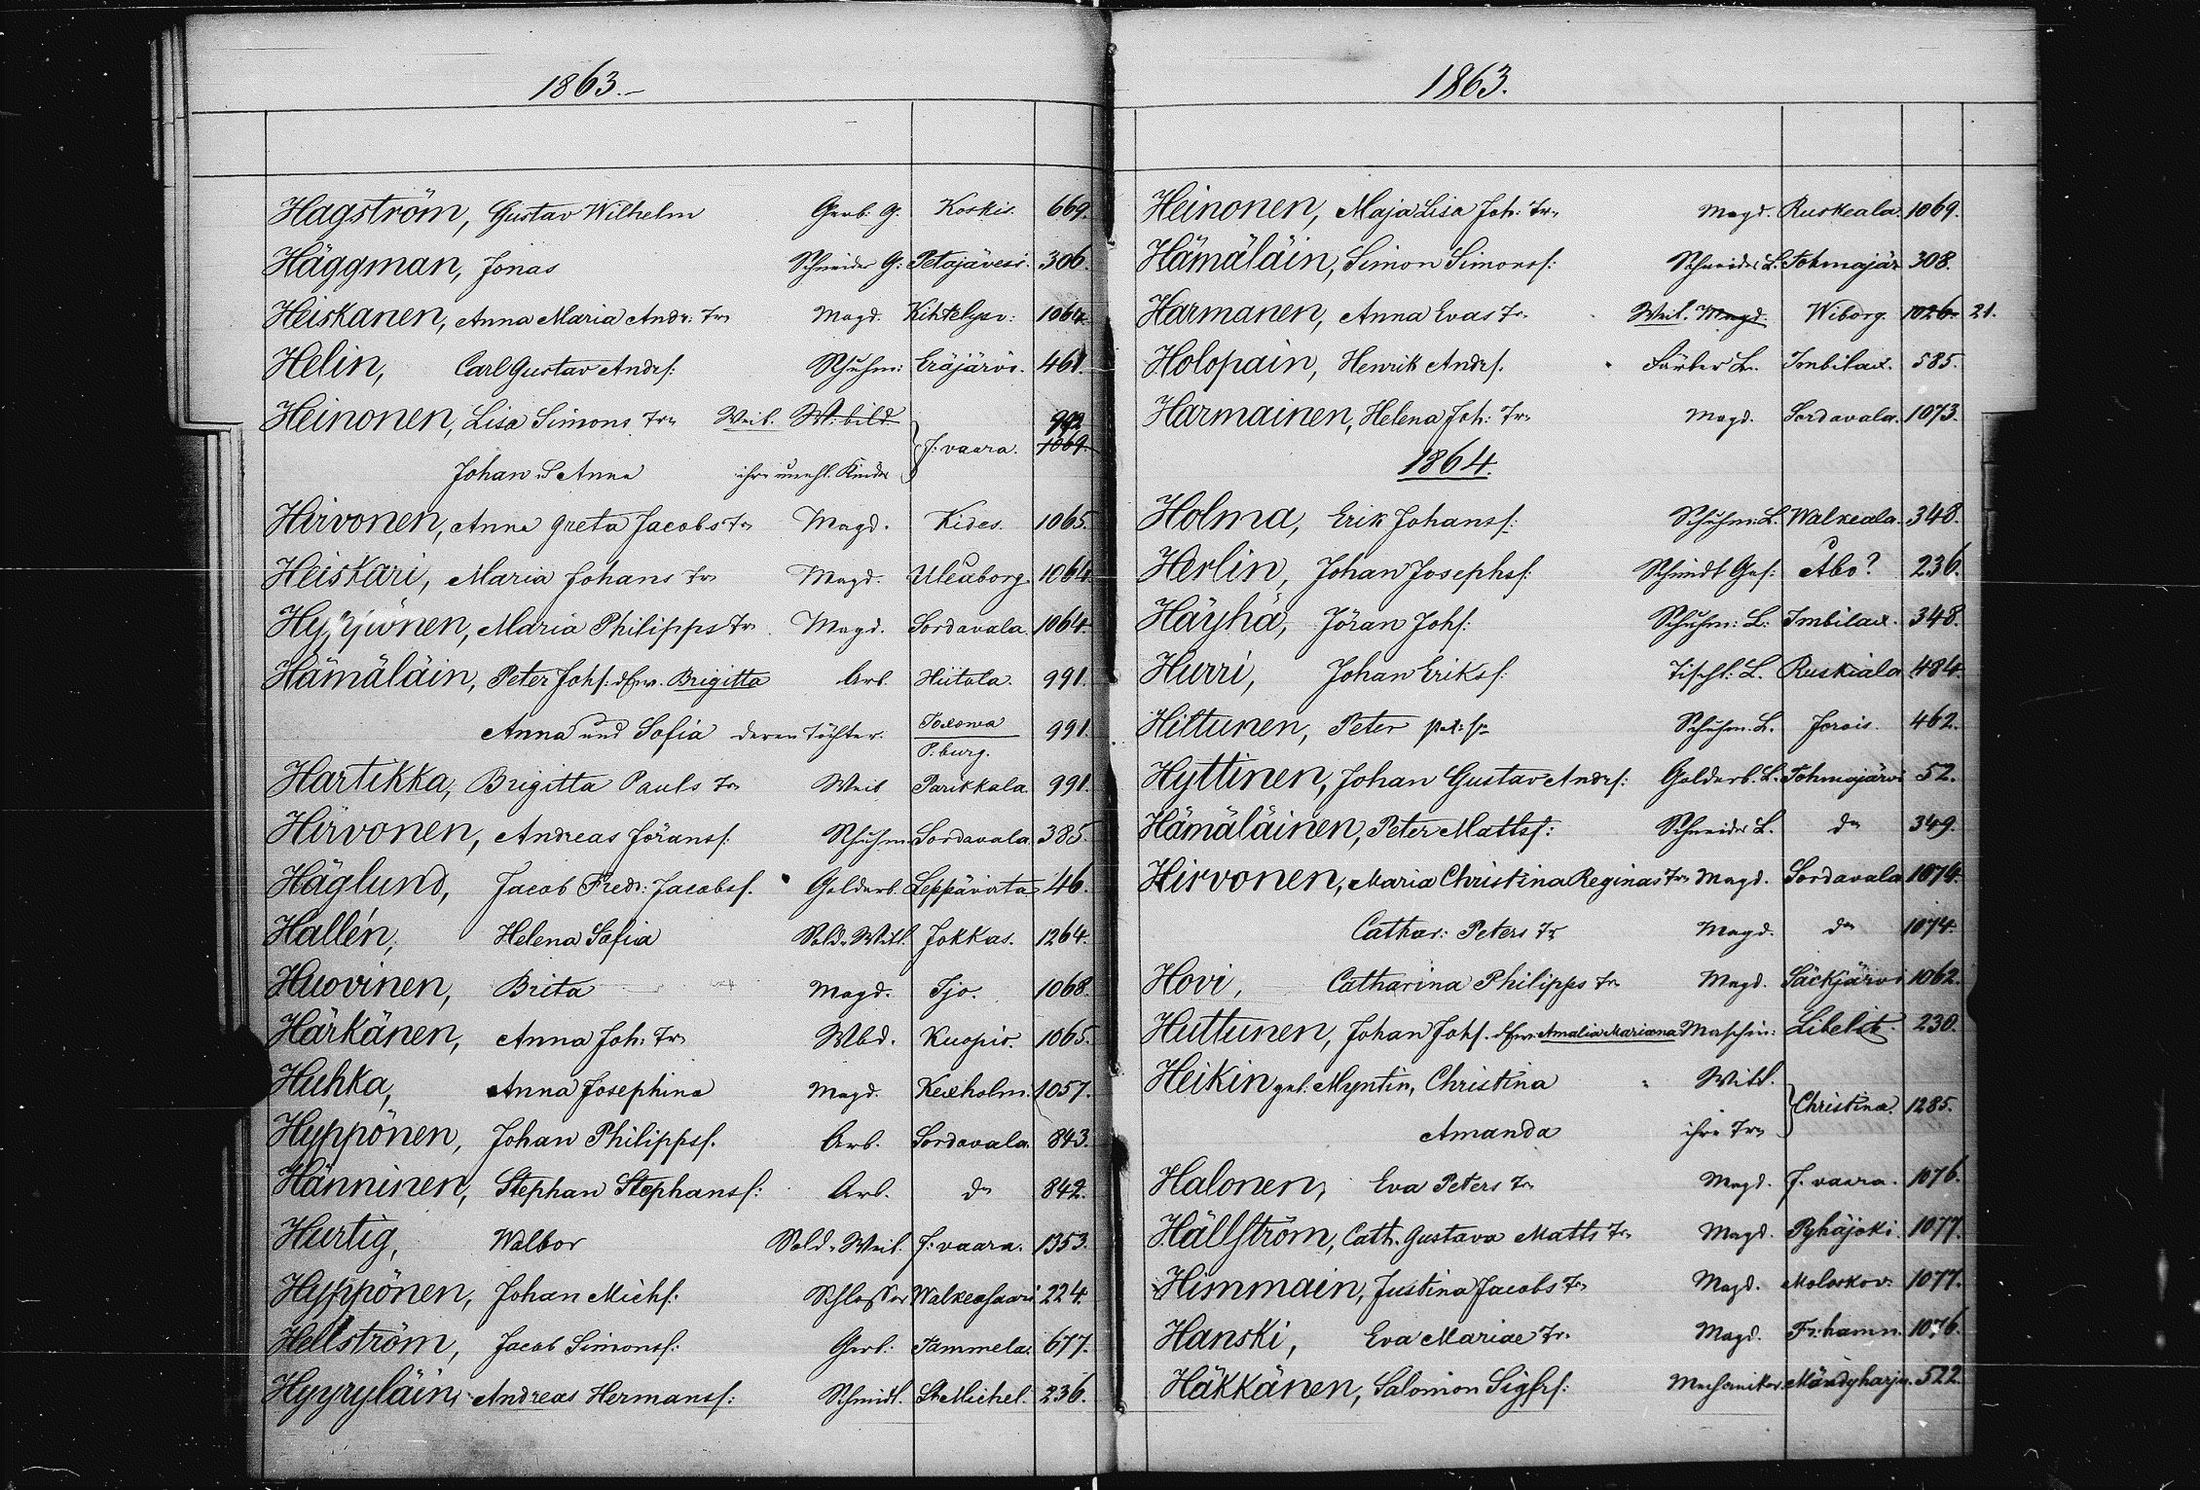 1863.-
Hagström, Gustav Wilhelm Gerb: G. Koskis. 669.
Häggman, Jonas Schneider G: Petäjävesi. 306.
Heiskanen, Anna Maria Andr: Tr. Magd. 1064.
Helin, Carl Gustav Andrs: Schuhm: Eräjärvi. 461.
Heinonen, Lisa Simons Tr. Weib. W.bild 992.
Johan u Anna ihre unehl. Kinder J:vaara. 1069.
Hirvonen, Anna Greta Jacobs Tr. Magd. Kides. 1065.
Heiskari, Maria Johans Tr. Magd. Uleaborg. 1064.
Hyppönen, Maria Philipps Tr. Magd. Sordavala. 1064.
Hämäläin, Peter Johs: Brigitta Arb. Hiitola. 991.
Anna und Sofia deren Töchter. Toxowa P.burg. 991.
Hartikka, Brigitta Pauls Tr. Weib Parikkala. 991.
Hirvonen, Andreas Jöranss: Schuhm. Sordavala. 385.
Häglund, Jacob Fredr: Jacobss. Goldarb. Leppävirta 46.
Hallén, Helena Sofia Sold. Witt. Jokkas. 1264.
Huovinen, Brita Magd. Ijo. 1068.
Härkänen, Anna Joh: Tr. Wbd. Kuopio. 1065.
Huhka, Anna Josephina Magd. Kexholm. 1057.
Hyppönen, Johan Philippss. Arb. Sordavala. 843.
Hänninen, Stephan Stephanss: Arb. do 842.
Hurtig, Walbor Sold. Weib. J:vaara. 1353.
Hyppönen, Johan Michs: Schlosser Walkeasaari 224.
Hellström, Jacob Simonss: Gerb: Tammela. 677.
Hyyryläin, Andreas Hermanss: Schmidt. St Michel. 236.
1863.
Heinonen, Maja Lisa Joh: Tr. Magd. Ruskeala. 1069.
Hämäläin, Simon Simonss: Schneider L. Tohmajär 308.
Harmanen, Anna Evas Tr. Weib. Magd. Wiborg. 1026. 21.
Holopain, Henrik Andrs. Färber L. Imbilax. 585.
Harmainen, Helena Joh: Tr. Magd. Sordavala. 1073.
1864.
Holma, Erik Johanss: Schuhm: L. Walkeala. 348.
Herlin, Johan Josephss: Schmidt Ges: Åbo? 236.
Häyhä, Jöran Johs: Schuhm: L: Imbilax. 348.
Hurri, Johan Erikss: Tischl: L. Ruskiala 484.
Hiltunen, Peter Schuhm. L. Jorois. 462.
Hyttinen, Johan Gustav Andrs: Goldarb. L. Tohmajärvi 52.
Hämäläinen, Peter Mattss: Schneider L. do 349.
Hirvonen, Maria Christina Reginas Tr. Magd. Sordavala 1074.
Cathar: Peters Tr. Magd. do 1074.
Hovi, Catharina Philipps Tr. Magd. Säckjärvi 1062.
Huttunen, Johan Johs. Amalia Mariana Maschin: Libelits. 230.
Heikin geb. Myntin, Christina Witt.
Christina. 1285.
Amanda ihre Tr.
Halonen, Eva Peters Tr. Magd. J. vaara. 1076.
Hällström, Cath. Gustava Matts Tr. Magd. Pyhäjoki. 1077.
Himmain, Justina Jacobs Tr. Magd. Moloskov. 1077.
Hanski, Eva Mariae Tr. Magd. Fr:hamn. 1076.
Häkkänen, Salomon Sigfrs: Mechaniker. Mändyharju. 522